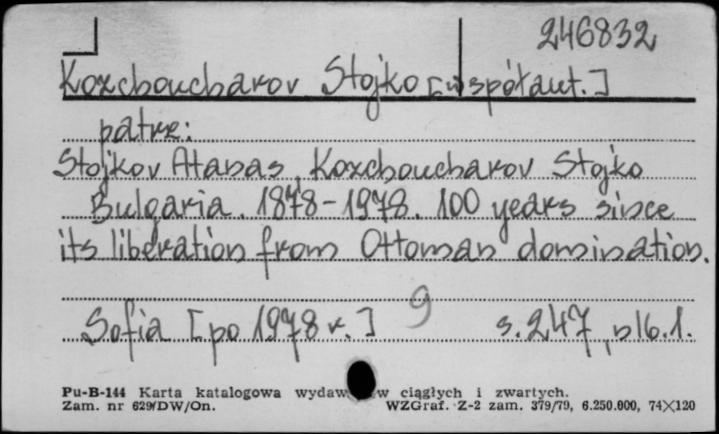 246832
Koxchoucharov Stojko [współaut.]
patrz:
Stojkov Atanas, Koxchoucharov Stojko
Bulgaria. 1878-1978. 100 years since
its liberation from Ottoman domination.
Sofia [po 1978 r.] 9 s. 247, nlb. 1.
Pu-B-144 Karta katalogowa wydaw w ciągłych i zwartych.
Zam. nr 629/DW/On. WZGraf. Z-2 zam. 379/79, 6.250.000, 74×120